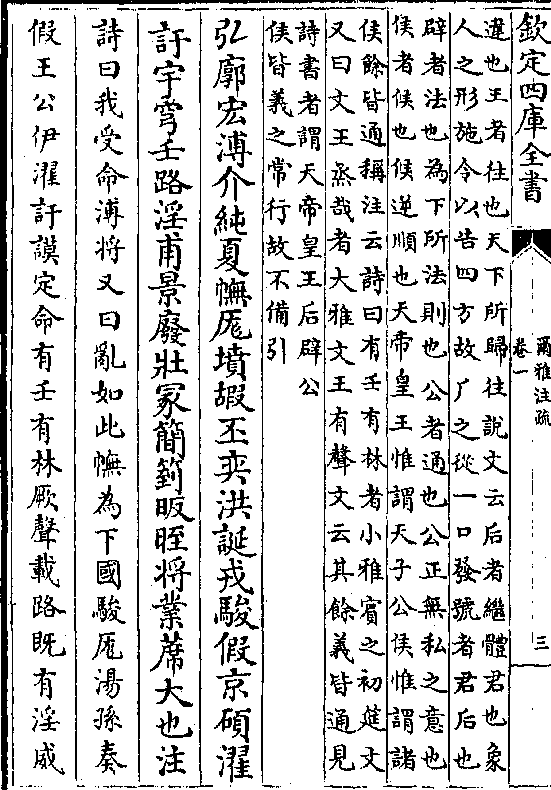 欽定四庫全書
爾雅注疏
卷一
三
違也王者往也天下所歸往說文云后者繼體君也象
人之形施令以告四方故厂之從一口發號者君后也
辟者法也為下所法則也公者通也公正無私之意也
侯者候也候逆順也天帝皇王惟謂天子公侯惟謂諸
侯餘皆通稱注云詩曰有壬有林者小雅賓之初筵文
又曰文王烝哉者大雅文王有聲文云其餘義皆通見
詩書者謂天帝皇王后辟公
侯皆義之常行故不備引
弘廓宏溥介純夏幠厖墳嘏丕奕洪誕戎駿假京碩濯
訏宇穹壬路淫甫景廢壯冢簡箌昄晊将業蓆大也注
詩曰我受命溥将又曰亂如此幠為下國駿厖湯孫奏
假王公伊濯訏謨定命有壬有林厥聲載路既有淫威